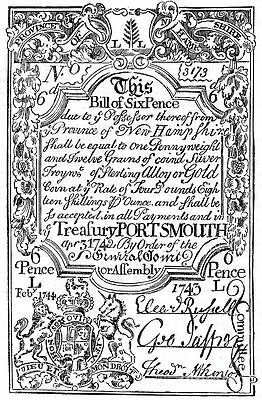 PROVINCE OF NEW HAMP SHIRE
L L
No
3173
6d 6d
This
Bill of Six Pence
due to ye Possessor thereof from
ye Province of New Hampshire
shall be equal to one Pennyweight
and Twelve Grains of coind Silver
Troy wt. of Sterling Alloy or Gold
Coin at ye Rate of Four Pounds Eigh
teen Shillings ℔ Ounce. and shall be
so accepted in all Payments and in
ye Treasury PORTSMOUTH
Apr. 3 1742 By Order of the
General Court
or Assembly
6 6
Pence Pence
L L
Feby. 1744
1743
Elear Russell
Geo Jaffrey
Theodr. Atkinson
Committee
DIEU ET MON DROIT